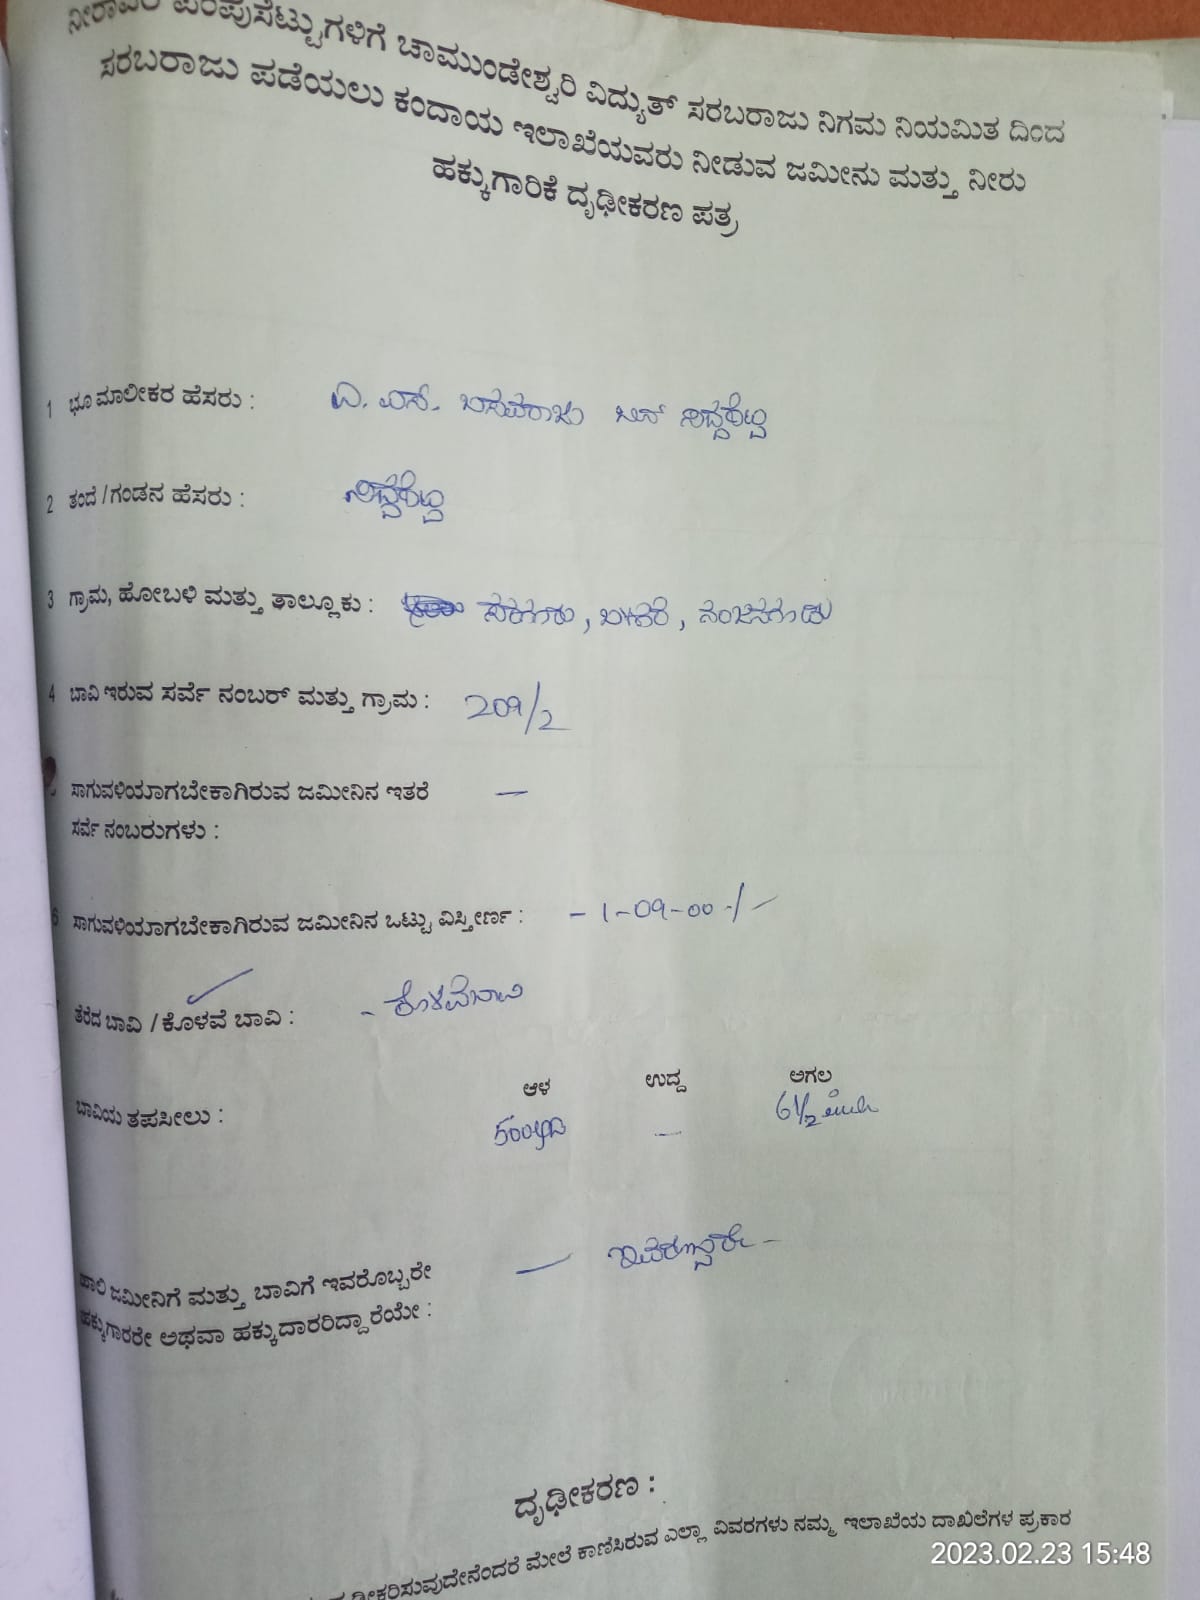 ನೀರಾವರಿ ಪಂಪುಸೆಟ್ಟುಗಳಿಗೆ ಚಾಮುಂಡೇಶ್ವರಿ ವಿದ್ಯುತ್ ಸರಬರಾಜು ನಿಗಮ ನಿಯಮಿತ ದಿಂದ
ಸರಬರಾಜು ಪಡೆಯಲು ಕಂದಾಯ ಇಲಾಖೆಯವರು ನೀಡುವ ಜಮೀನು ಮತ್ತು ನೀರು
ಹಕ್ಕುಗಾರಿಕೆ ದೃಢೀಕರಣ ಪತ್ರ
1 ಭೂ ಮಾಲೀಕರ ಹೆಸರು : ಎಸ್. ಬಸವರಾಜು ಬಿನ್ ಸಿದ್ದಶೆಟ್ಟಿ
2 ತಂದೆ / ಗಂಡನ ಹೆಸರು : ಸಿದ್ದಶೆಟ್ಟಿ
3 ಗ್ರಾಮ, ಹೋಬಳಿ ಮತ್ತು ತಾಲ್ಲೂಕು : ನಂಜನಗೂಡು
4 ಬಾವಿ ಇರುವ ಸರ್ವೆ ನಂಬರ್ ಮತ್ತು ಗ್ರಾಮ : 209/2
ಸಾಗುವಳಿಯಾಗಬೇಕಾಗಿರುವ ಜಮೀನಿನ ಇತರೆ —
ಸರ್ವೆ ನಂಬರುಗಳು :
6 ಸಾಗುವಳಿಯಾಗಬೇಕಾಗಿರುವ ಜಮೀನಿನ ಒಟ್ಟು ವಿಸ್ತೀರ್ಣ : - 1-09-00 -/-
ತೆರೆದ ಬಾವಿ / ಕೊಳವೆ ಬಾವಿ : - ಕೊಳವೆಬಾವಿ
ಆಳ ಉದ್ದ ಅಗಲ
ಬಾವಿಯ ತಪಸೀಲು : 500ಅಡಿ — 6½ ಇಂಚು
ಹಾಲಿ ಜಮೀನಿಗೆ ಮತ್ತು ಬಾವಿಗೆ ಇವರೊಬ್ಬರೇ — ಇವರೊಬ್ಬರೇ -
ಹಕ್ಕುಗಾರರೇ ಅಥವಾ ಹಕ್ಕುದಾರರಿದ್ದಾರೆಯೇ :
ದೃಢೀಕರಣ :
ಢೀಕರಿಸುವುದೇನೆಂದರೆ ಮೇಲೆ ಕಾಣಿಸಿರುವ ಎಲ್ಲಾ ವಿವರಗಳು ನಮ್ಮ ಇಲಾಖೆಯ ದಾಖಲೆಗಳ ಪ್ರಕಾರ
2023.02.23 15:48